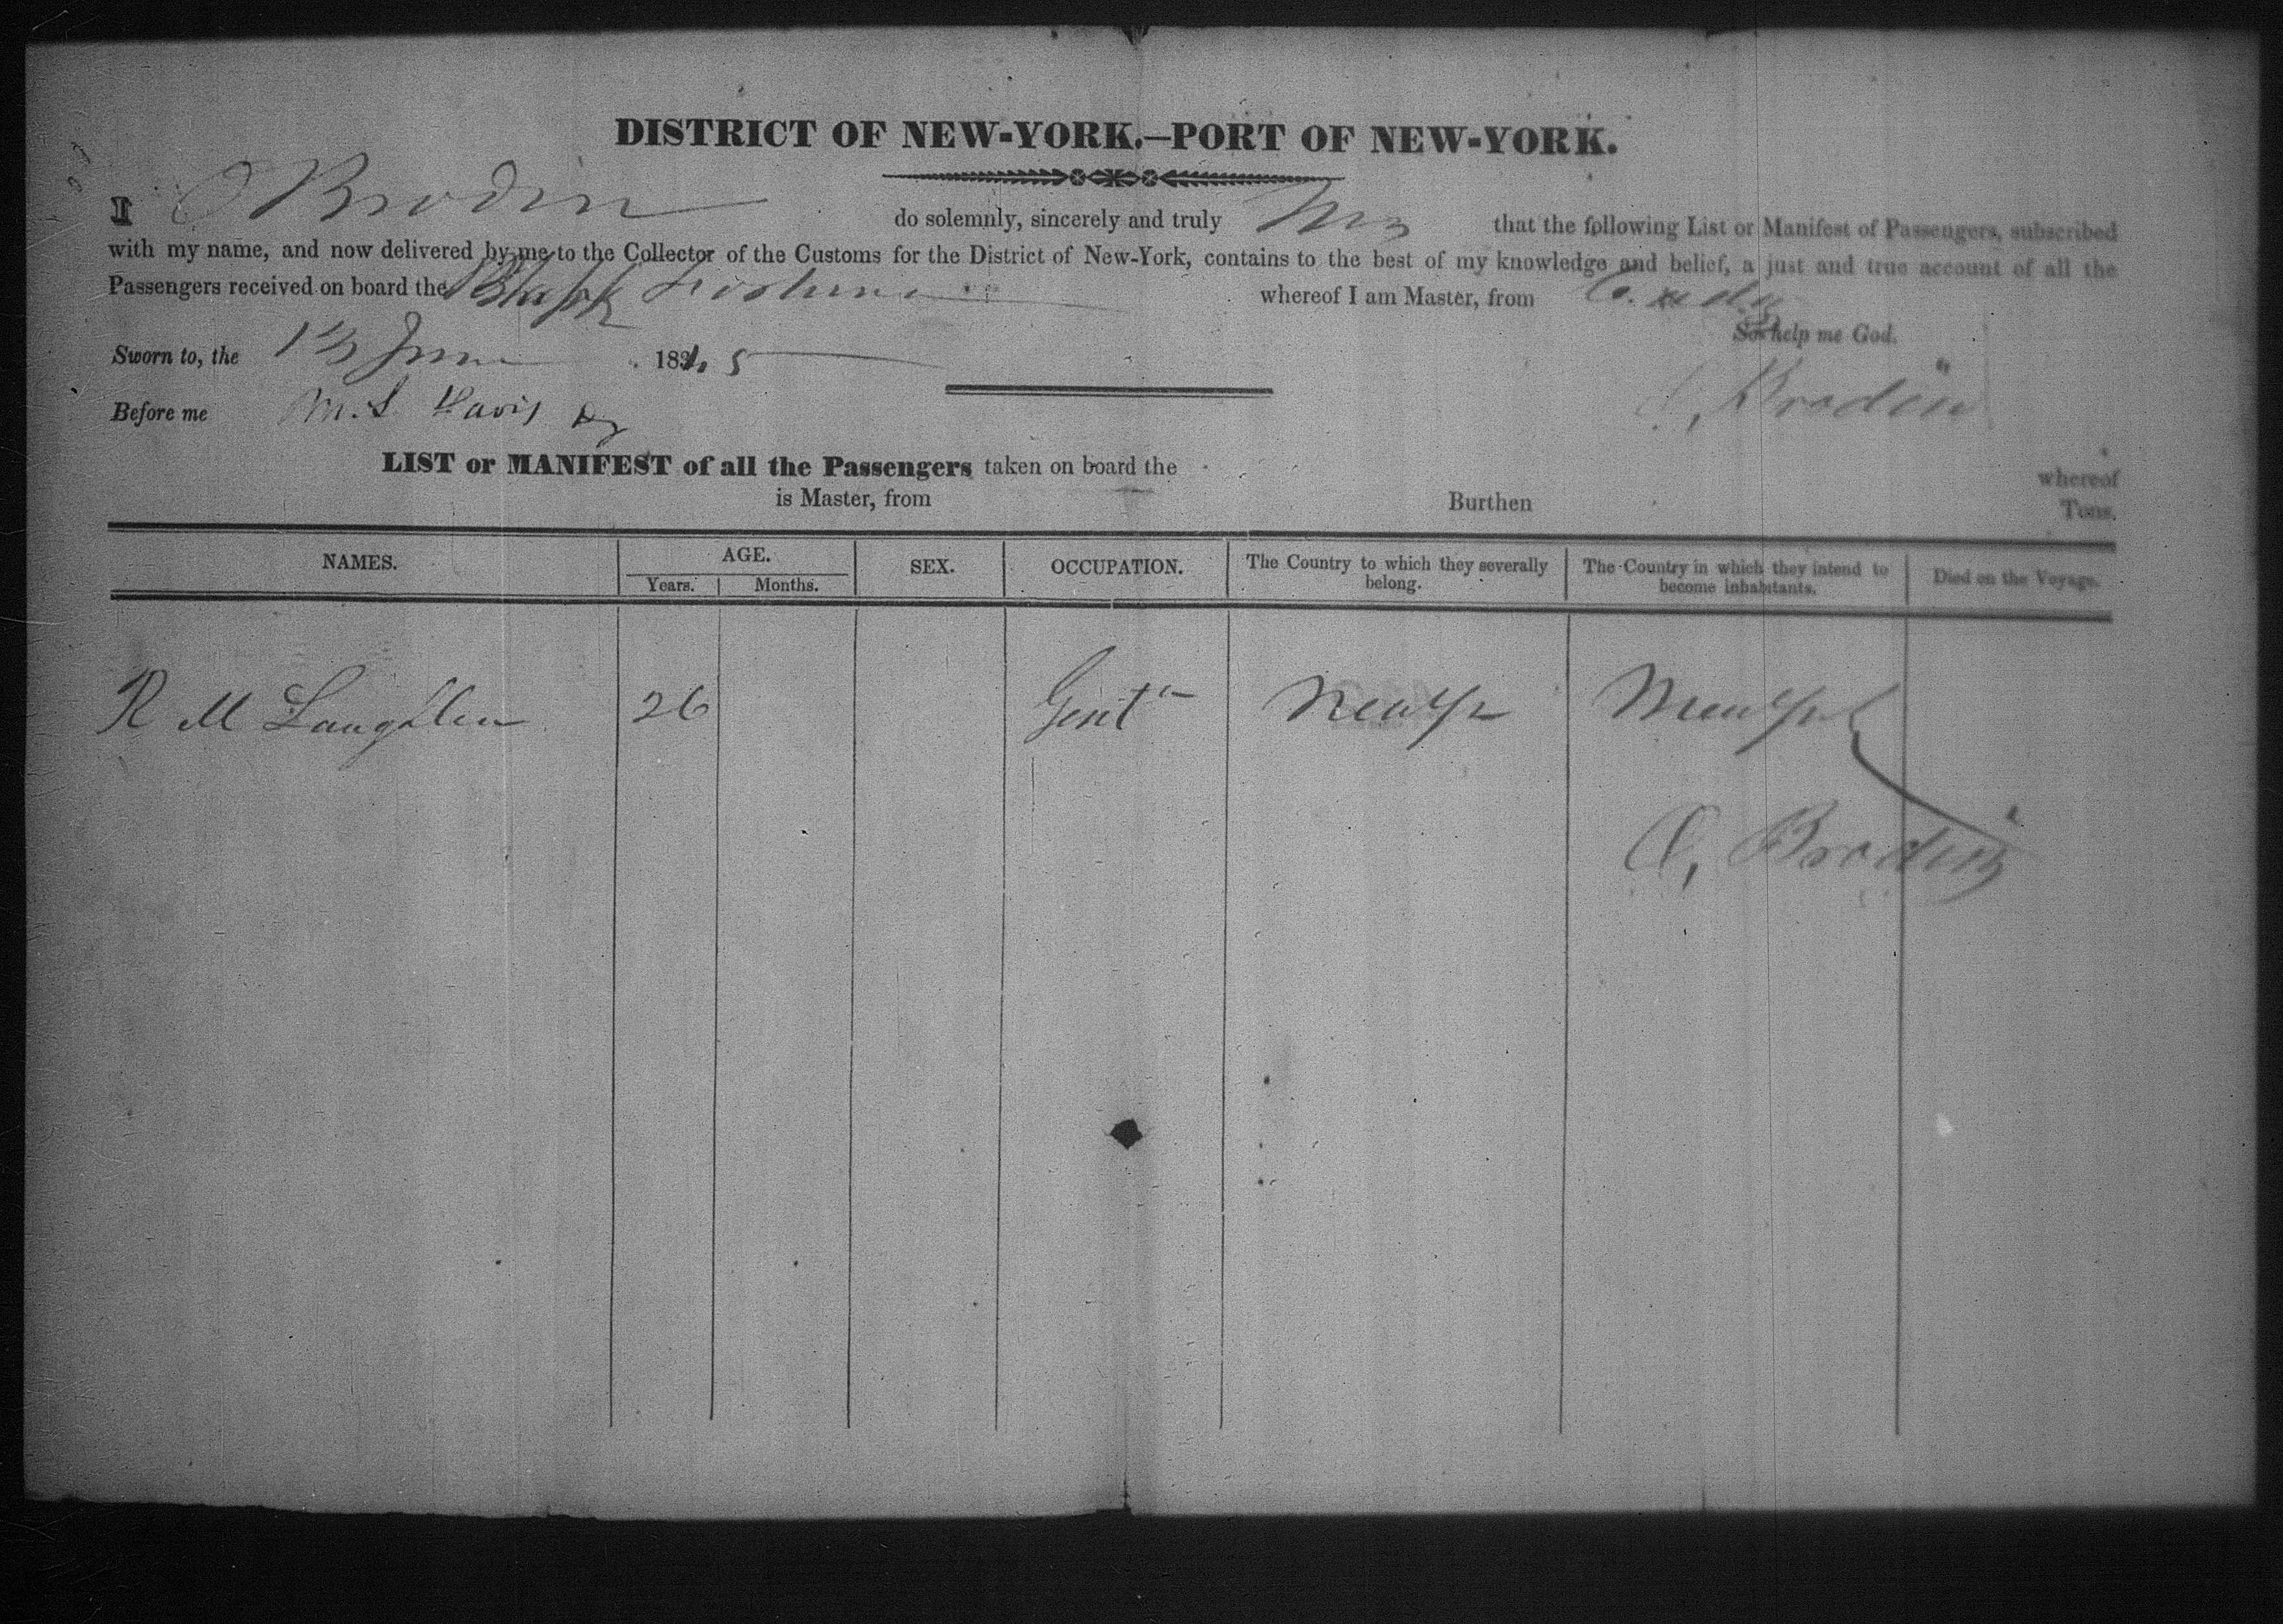 DISTRICT OF NEW-YORK.—PORT OF NEW-YORK.
I O Brodin do solemnly, sincerely and truly that the following List or Manifest of Passengers, subscribed
with my name, and now delivered by me to the Collector of the Customs for the District of New-York, contains to the best of my knowledge and belief, a just and true account of all the
Passengers received on board the whereof I am Master, from
So help me God.
Sworn to, the 13 June 1845
O, Brodin
Before me M. L. Davis
LIST or MANIFEST of all the Passengers taken on board the whereof
is Master, from Burthen Tons.
NAMES. AGE. SEX. OCCUPATION. The Country to which they severally belong. The Country in which they intend to become inhabitants. Died on the Voyage.
Years. Months.
R M Laughlen 26 Gent
O, Brodin